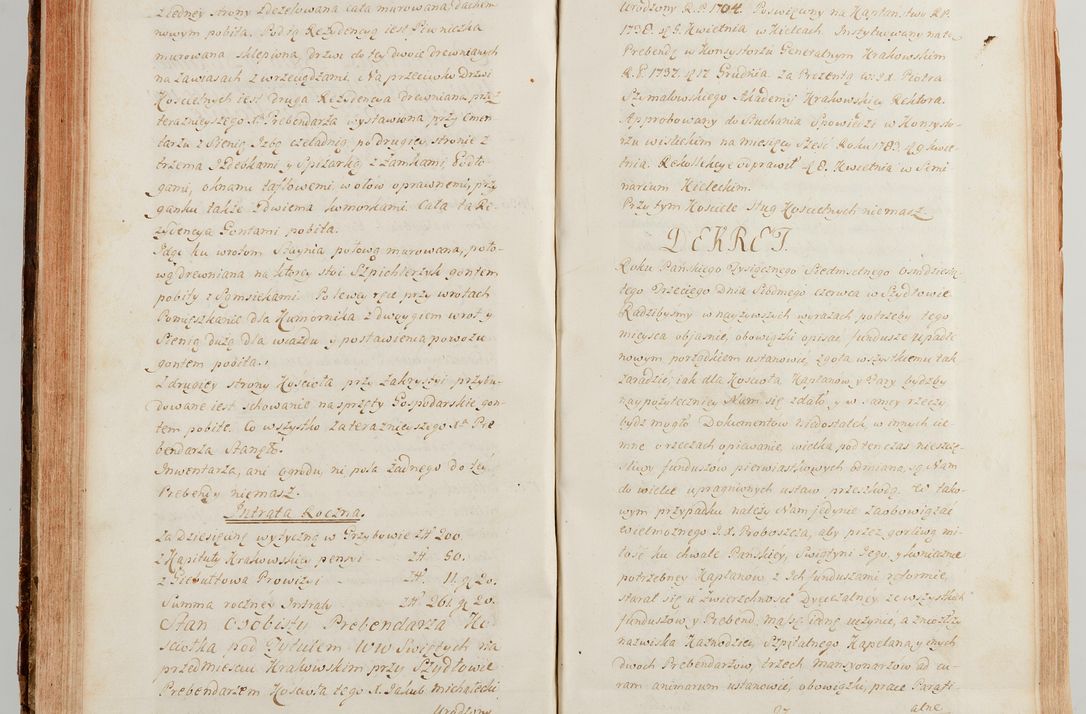 z jedney strony zdezelowana cała murowana, dachem
nowym pobita. Podtą Rezydencyą iest Piwniczka
murowana sklepiona, drzwi do tey dwoie drewnianych
na zawiasach z wrzeciądzami. Na przeciwko drzwi
Kościelnych iest druga Rezydencya drewniana przez
teraznieyszego Xa Prebendarza wystawiona przy Cmen
tarzu z Sienią, Izbą czeladnią, po drugiey stronie z
trzema Izdebkami, y Spiżarką z zamkami, Podło
gami, oknami taflowemi w ołow oprawnemi, przy
ganku także z dwiema komorkami. Cała ta Re-
zydencya Gontami pobita.
Idąc ku wrotom Staynia połową murowana, poło-
wą drewniana na ktorey stoi Szpichlerzyk gontem
pobity z Sąmsiekami. Po lewey ręce przy wrotach
Pomięszkanie dla Kumornika z dwoygiem wrot y
Sienią dużą dla wiazdu y postawienia powozu
gontem pobita.
Z drugiey strony Kościoła przy Zakrystyi przybu-
dowane iest schowanie na sprzęty Gospodarskie gon-
tem pobite. Co wszystko za teraznieyszego Xa Pre
bendarza stanęło.
Inwentarza, ani ogrodu, ni pola żadnego do tey
Prebendy niemasz.
Intrata Roczna.
Za dziesięcinę wytyczną w Grzybowie Zł 200.
z Kapituły Krakowskiey pensyi - Zł. 50.
z Giebułtowa Prowizyi - Zł. 11. g 20.
Summa roczney Intraty Zł. 261. g 20.
Stan osobisty Prebendarza Ko
ścioła pod Tytułem WW Świętych na
przedmiesciu Krakowskim przy Szydłowie
Prebendarzem Kościoła tego X. Jakub Michałecki
Urodzony
Urodzony R.P. 1704. Poświęcony na Kapłaństwo R.P.
1738. d. 6. Kwietnia w Kielcach. Instytuowany na tę
Prebendę w Konsystorzu Generalnym Krakowskim
R.P. 1737. d. 17. Grudnia za Prezentą Piotra
Szymakowskiego Akademij Krakowskiey Rektora.
Approbowany do słuchania Spowiedzi w Konsysto-
rzu wislickim na miesięcy sześć Roku 1783. d. 9 kwie-
tnia. Rekollekcye odprawił d. 8. Kwietnia w Semi
narium Kieleckim.
Przy tym Kościele sług Kościelnych niemasz.
DEKRET.
Roku Pańskiego Tysiącznego Siedmsetnego osmdziesią-
tego Trzeciego Dnia Siodmego czerwca w Szydłowie
Radzibysmy w naywyższych wyrazach potrzeby tego
mieysca obiaśnić, obowiązki opisać fundusze upadłe
nowym porządkiem ustanowić, zgoła wszystkiemu tak
zaradzić, iak dla Kościoła Kapłanow y Fary bydźby
naypożyteczniey Nam się zdało, y w samey rzeczy
bydź mogło. Dokumentow niedostatek w innych cie-
mne o rzeczach opiewanie, wielka podtenczas nieszczę-
śliwy funduszow pierwiastkowych odmiana, są Nam
do wielce upragnionych ustaw przeszkodą. W tako-
wym przypadku należy Nam iedynie zaobowiązać
wielmożnego J.X. Proboszcza, aby przez gorliwą mi-
łość ku chwale Pańskiey, Swiątyni Jego, y koniecznie
potrzebney Kapłanow z Ich funduszami reformie,
starał się u Zwierzchności Dyecezalney ze wszystkich
funduszow, y Prebend, massę iednę uczynić, a znioższy
nazwiska Kaznodziei, Szpitalnego Kapelana, y innych
dwoch Prebendarzow, trzech mansyonarzow ad cu-
ram animarum ustanowić, obowiązki, prace Parafi-
alne